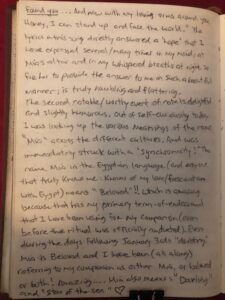 found you... And now with my loving arms around you
Honey, I can stand up and face the world." The
lyrics in this song directly answered a "hope" that I
have expressed several/many times in my mind, at
Mio's altar and in my whispered breaths at night. So
for her to provide the answer to me in such a beautiful
manner; is truly humbling and flattering.
The second notable/worthy event of note is delightful
and slightly humorous. Out of self-curiosity today
I was looking up the various meanings of the name
"Mio" across the different cultures. And was
immediately struck with a "Synchronicity!" The
name Mio in the Egyptian language (and anyone
that truly knows me; knows of my love/fascination
with Egypt) means "Beloved"!! Which is amazing
because that has my primary term-of-endearment
that I have been using for my companion (even
before the ritual was officially conducted). Even
during the days following January 3rd's "desting"
Mio is Beloved and I have been (all along)
referring to my companion as either Mio, or beloved
or both! Amazing... Mio also means "Darling"
and "Star of the sea." ♡